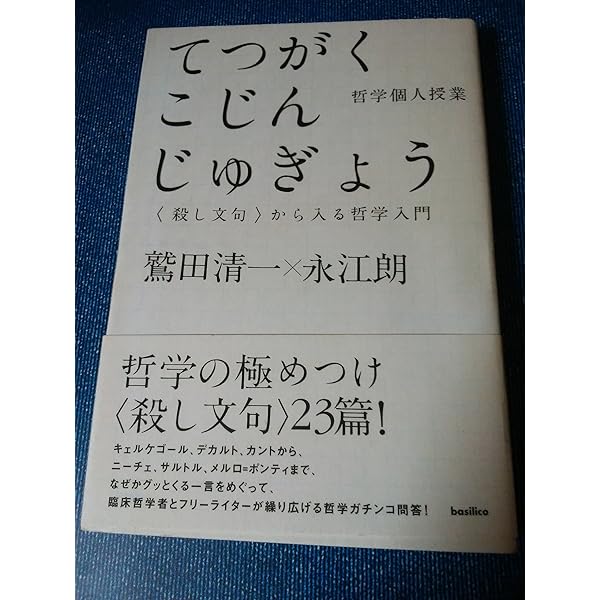 てつがく
こじん 哲学個人授業
じゅぎょう
〈殺し文句〉から入る哲学入門
鷲田清一×永江朗
哲学の極めつけ
〈殺し文句〉23篇!
キェルケゴール、デカルト、カントから、
ニーチェ、サルトル、メルロ=ポンティまで、
なぜかグッとくる一言をめぐって、
臨床哲学者とフリーライターが繰り広げる哲学ガチンコ問答!
basilico